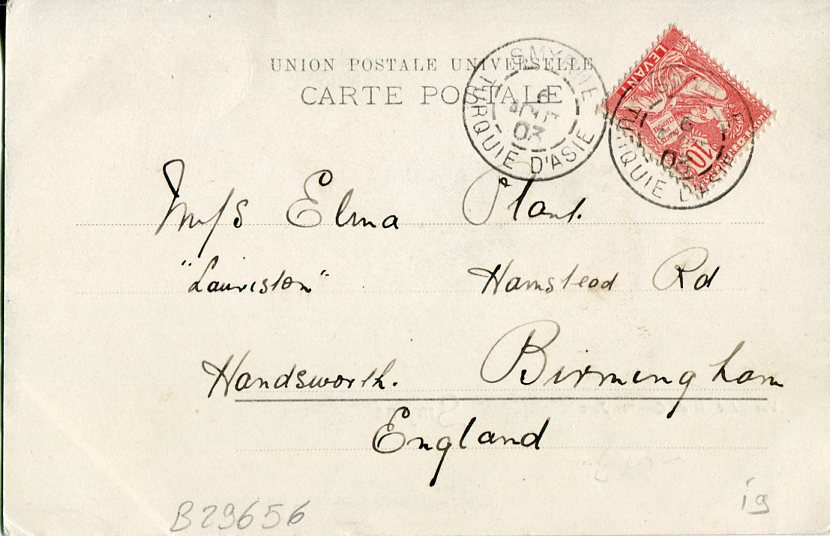 UNION POSTALE UNIVERSELLE
CARTE POSTALE
SMYRNE
03
TURQUIE D'ASIE
LEVANT
10
03
TURQUIE D'ASIE
Miss Elma Plant.
"Lauriston" Hamstead Rd
Handsworth. Birmingham
England
B29656
19